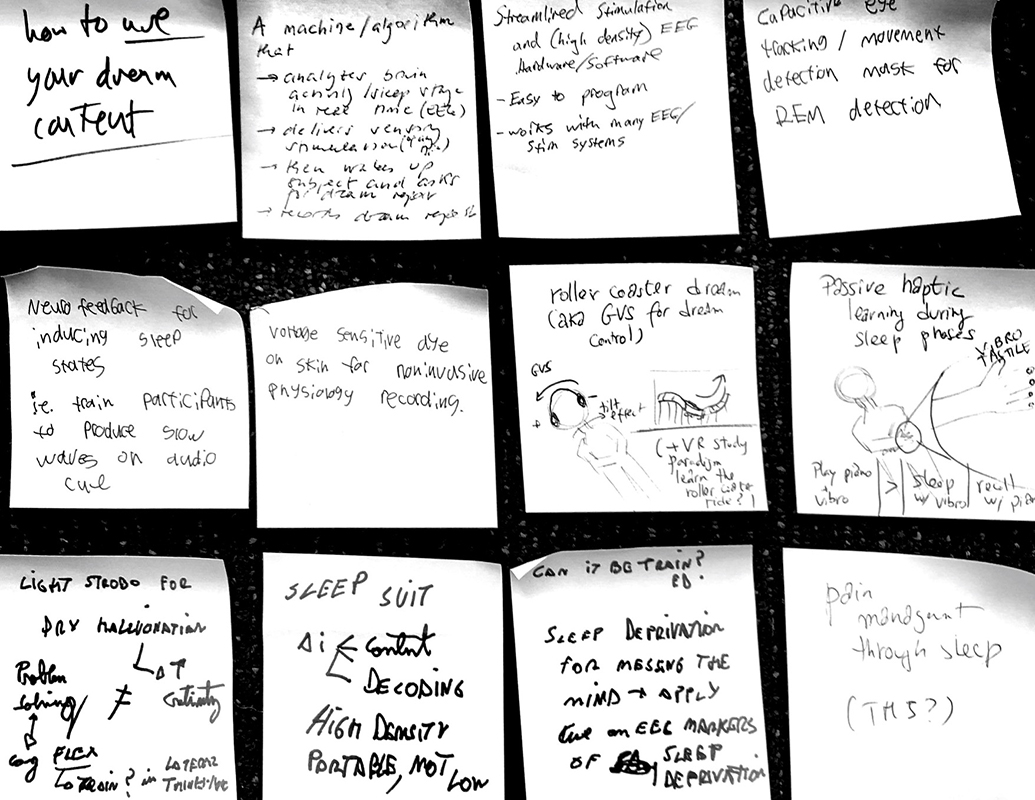 how to use
your dream
content
A machine/algorithm
that
→ analyzes brain
activity/sleep stage
in real time (EEG)
→ delivers sensory
stimulation
→ then wakes up
subject and asks
for dream report
→ records dream report
Streamlined Stimulation
and (high density) EEG
Hardware/Software
- Easy to program
- works with many EEG/
Stim systems
Capacitive eye
tracking/movement
detection mask for
REM detection
Neurofeedback for
inducing sleep
states
ie. train participants
to produce slow
waves on audio
cue
voltage sensitive dye
on skin for noninvasive
physiology recording.
roller coaster dream
(aka GVS for dream
control)
GVS
tilt
effect
(+VR study
paradigm
learn the
roller coaster
ride?)
Passive haptic
learning during
sleep phases
VIBRO
TACTILE
Play piano
+ vibro
>
sleep
w/ vibro
recall
w/
LIGHT STROBO FOR
Problem
solving
≠
FLEX
TRAIN? in
SLEEP SUIT
Ai ← Content
DECODING
HIGH DENSITY
PORTABLE, NOT LOW
CAN IT BE TRAIN?
SLEEP DEPRIVATION
FOR MESSING THE
MIND → APPLY
on EEG MARKERS
OF SLEEP
DEPRIVATION
pain
through sleep